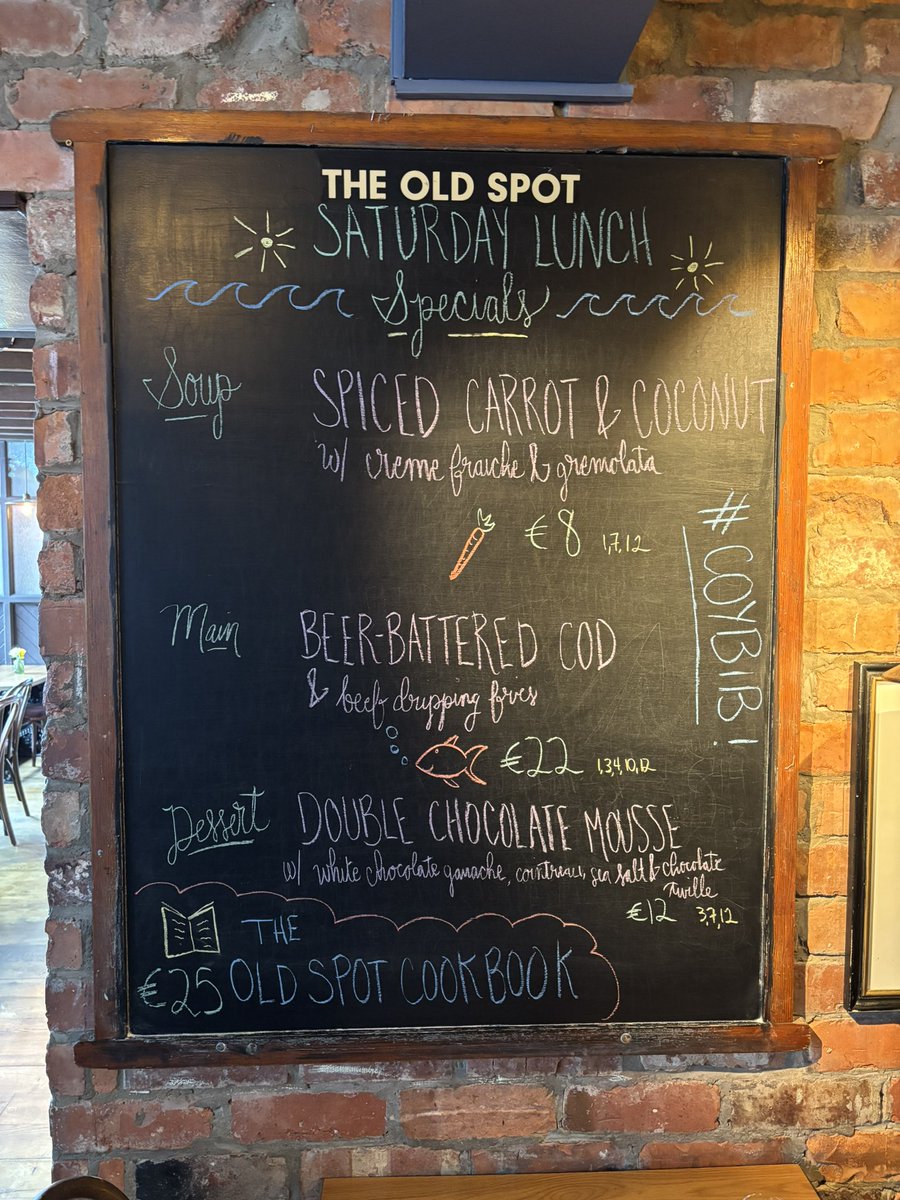 THE OLD SPOT
SATURDAY LUNCH
Specials
Soup
SPICED CARROT & COCONUT
w/ creme fraiche & gremolata
€8 1,7,12
#COYBIB!
Main
BEER-BATTERED COD
& beef dripping fries
€22 1,3,4,10,12
Dessert
DOUBLE CHOCOLATE MOUSSE
w/ white chocolate ganache, cointreau, sea salt & chocolate
€12 3,7,12
THE
€25 OLD SPOT COOKBOOK